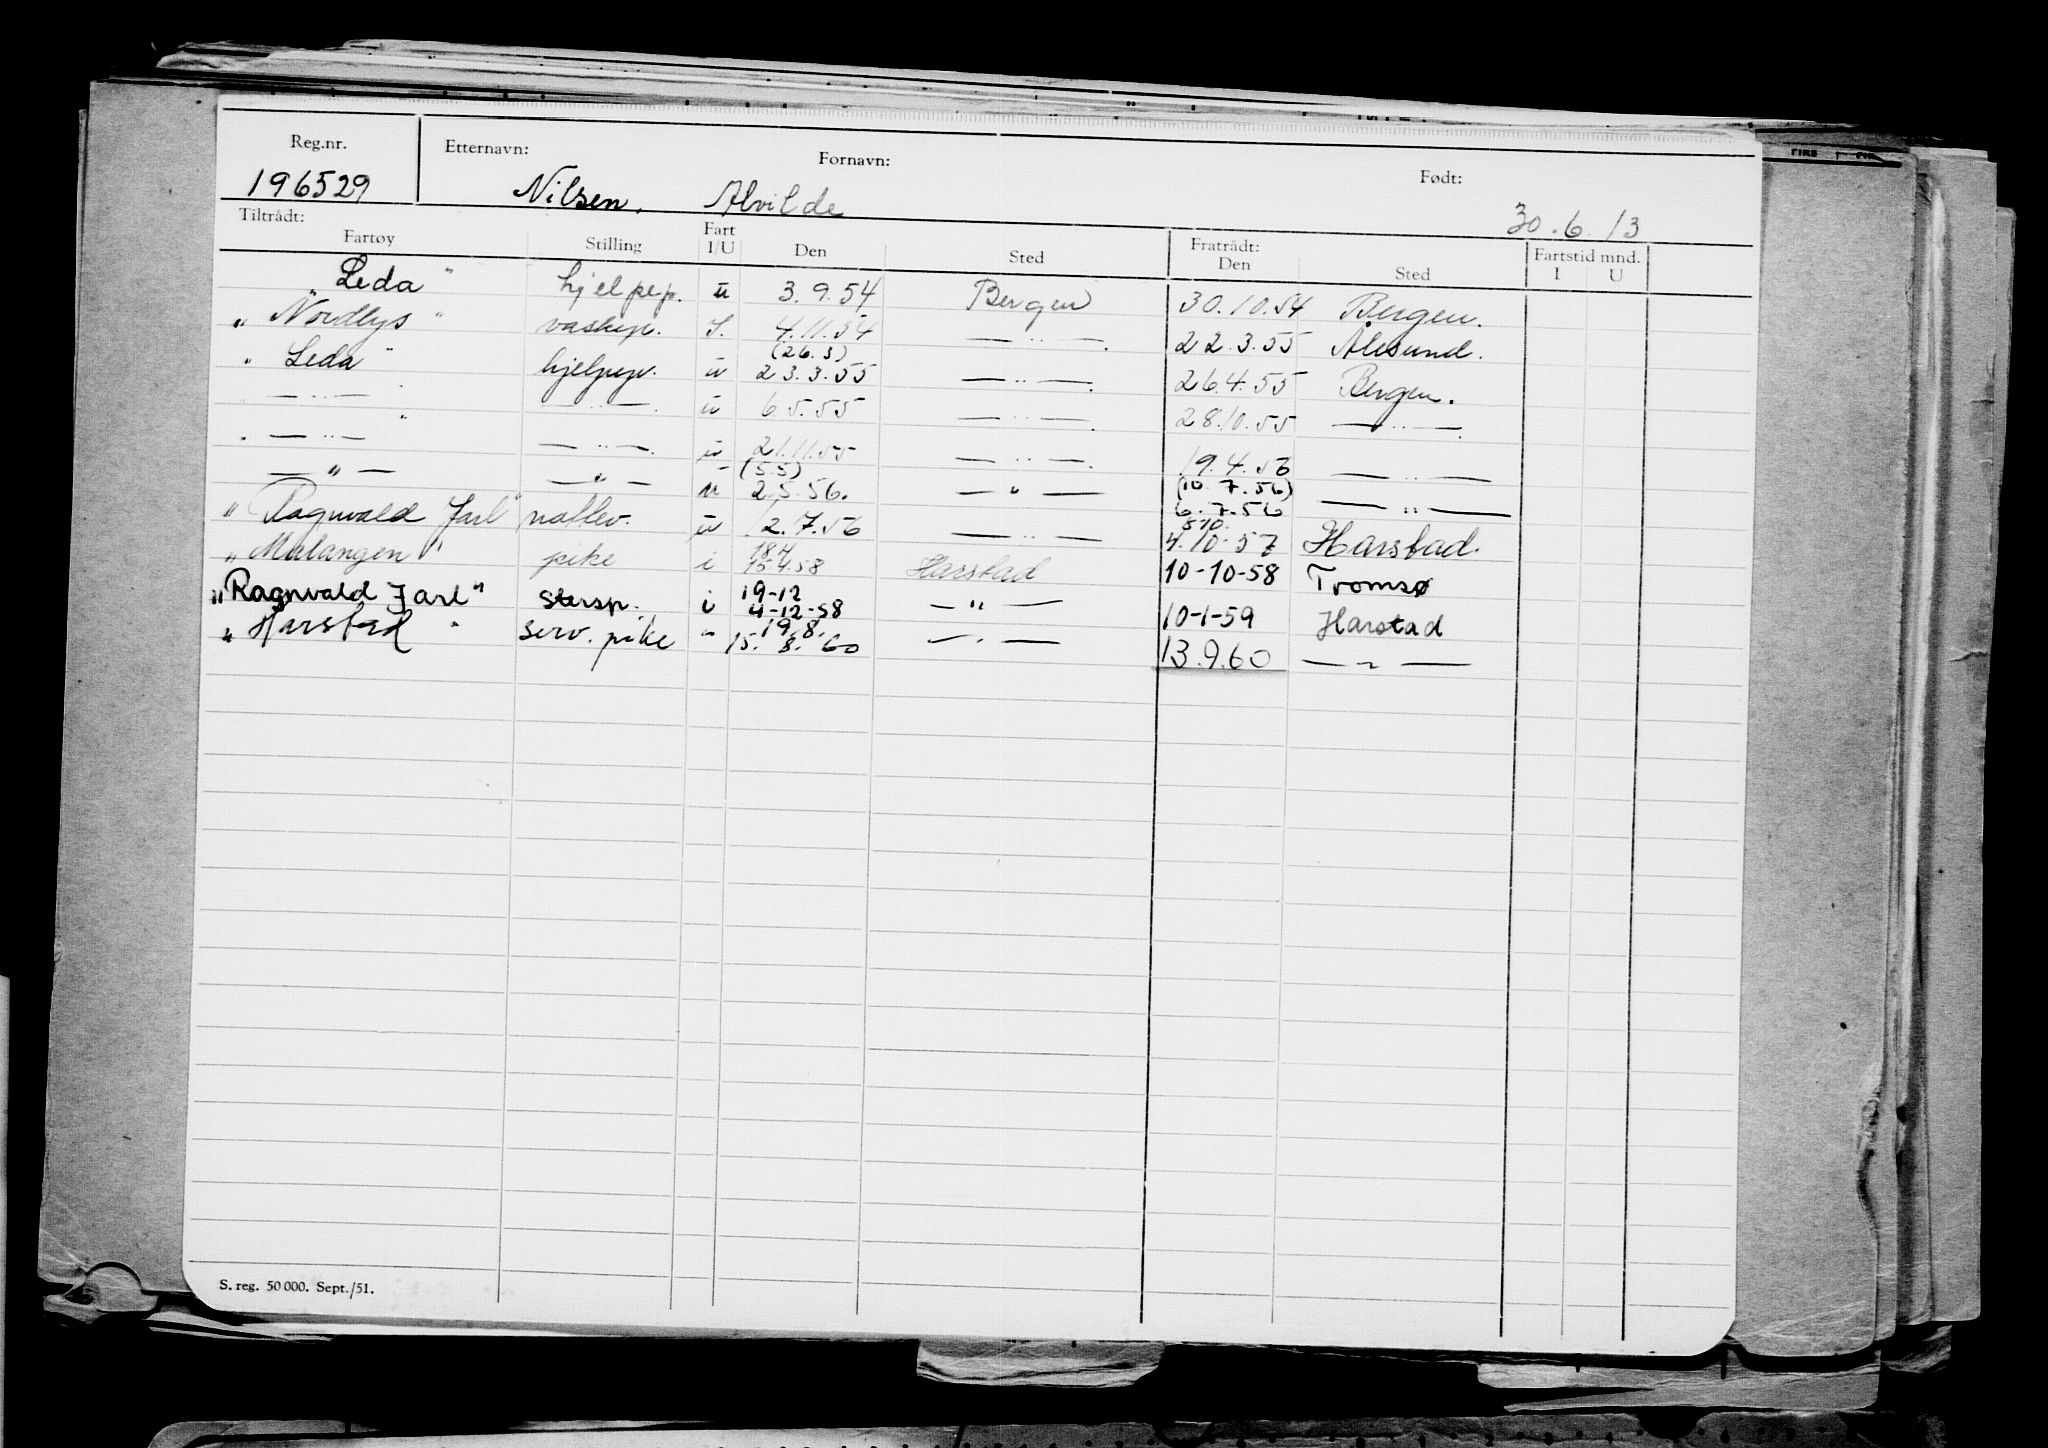 Reg.nr. Etternavn: Fornavn: Født:
196529 Nilsen, Alvilde 30.6.13
Tiltrådt: Fratrådt: Fartstid mnd.
Fartøy Stilling Fart I/U Den Sted Den Sted I U
"Leda" hjelpep. u 3.9.54 Bergen 30.10.54 Bergen.
"Nordlys" vaskep. I. 4.11.54 — " — 22.3.55 Ålesund.
(26.3)
"Leda" hjelpep. u 23.3.55 — " — 26.4.55 Bergen.
" — " — " — " — u 6.5.55 — " — 28.10.55 — " —
" — " — — " — u 21.11.55 — " — 19.4.56 — " —
(5.5) (10.7.56)
— " — — " — u 2.5.56. — " — 6.7.56 — " —
"Ragnvald Jarl" u 12.7.56 — " — 4.10-57 Harstad.
18.4
"Malangen" pike i 15.4.58 Harstad 10-10-58 Tromsø
19-12
"Ragnvald Jarl" i 4-12-58 — " — 10-1-59 Harstad
19.8.
"Harstad" serv. pike " 15.8.60 — " — 13.9.60 — " —
S. reg. 50 000. Sept./51.